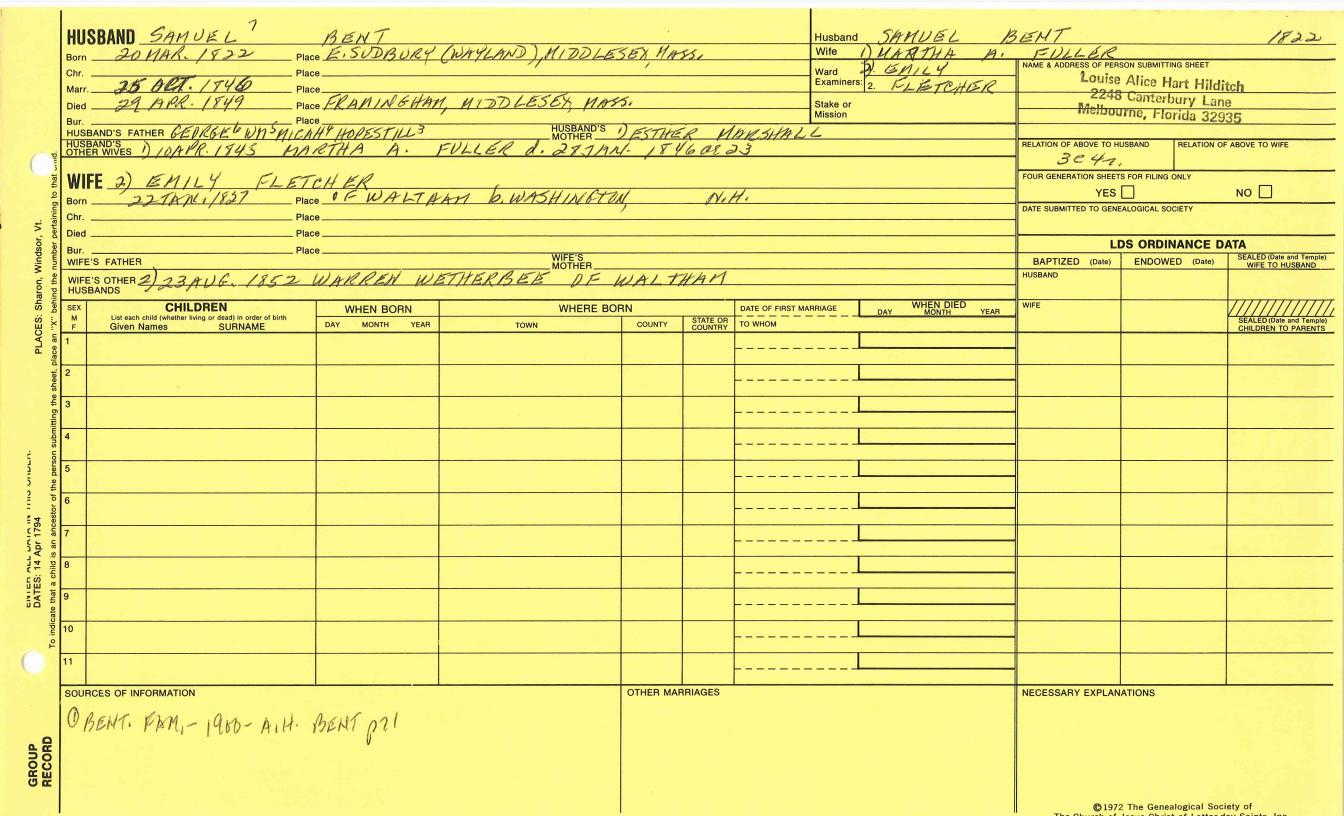 HUSBAND SAMUEL 7 BENT
Born 20 MAR. 1822 Place E. SUDBURY (WAYLAND), MIDDLESEX, MASS.
Chr. Place
Marr. 25 OCT. 1846 Place
Died 29 APR. 1849 Place FRAMINGHAM, MIDDLESEX, MASS.
Bur. Place
HUSBAND'S FATHER GEORGE6 WM5 MICAH4 HOPESTILL3 HUSBAND'S MOTHER 1) ESTHER MARSHALL
HUSBAND'S OTHER WIVES 1) 10 APR. 1845 MARTHA A. FULLER d. 28 JAN. 1846 ae 23
WIFE 2) EMILY FLETCHER
Born 22 JAN. 1827 Place OF WALTHAM b. WASHINGTON, N.H.
Chr. Place
Died Place
Bur. Place
WIFE'S FATHER WIFE'S MOTHER
WIFE'S OTHER HUSBANDS 2) 23 AUG. 1852 WARREN WETHERBEE OF WALTHAM
Husband SAMUEL BENT 1822
Wife 1) MARTHA A. FULLER
Ward Examiners: 2) EMILY
2. FLETCHER
Stake or Mission
NAME & ADDRESS OF PERSON SUBMITTING SHEET
Louise Alice Hart Hilditch
2248 Canterbury Lane
Melbourne, Florida 32935
RELATION OF ABOVE TO HUSBAND RELATION OF ABOVE TO WIFE
3C4r.
FOUR GENERATION SHEETS FOR FILING ONLY
YES NO
DATE SUBMITTED TO GENEALOGICAL SOCIETY
LDS ORDINANCE DATA
BAPTIZED (Date) ENDOWED (Date) SEALED (Date and Temple) WIFE TO HUSBAND
HUSBAND
WIFE
SEALED (Date and Temple) CHILDREN TO PARENTS
SEX M F
CHILDREN
List each child (whether living or dead) in order of birth
Given Names SURNAME
WHEN BORN
DAY MONTH YEAR
WHERE BORN
TOWN COUNTY STATE OR COUNTRY
DATE OF FIRST MARRIAGE
TO WHOM
WHEN DIED
DAY MONTH YEAR
1
2
3
4
5
6
7
8
9
10
11
SOURCES OF INFORMATION
① BENT. FAM,- 1900- A.H. BENT p71
OTHER MARRIAGES
NECESSARY EXPLANATIONS
©1972 The Genealogical Society of
The Church of Jesus Christ of Latter-day Saints, Inc.
PLACES: Sharon, Windsor, Vt.
ENTER ALL DATA IN THIS ORDER:
DATES: 14 Apr 1794
To indicate that a child is an ancestor of the person submitting the sheet, place an "X" behind the number pertaining to that child.
GROUP
RECORD